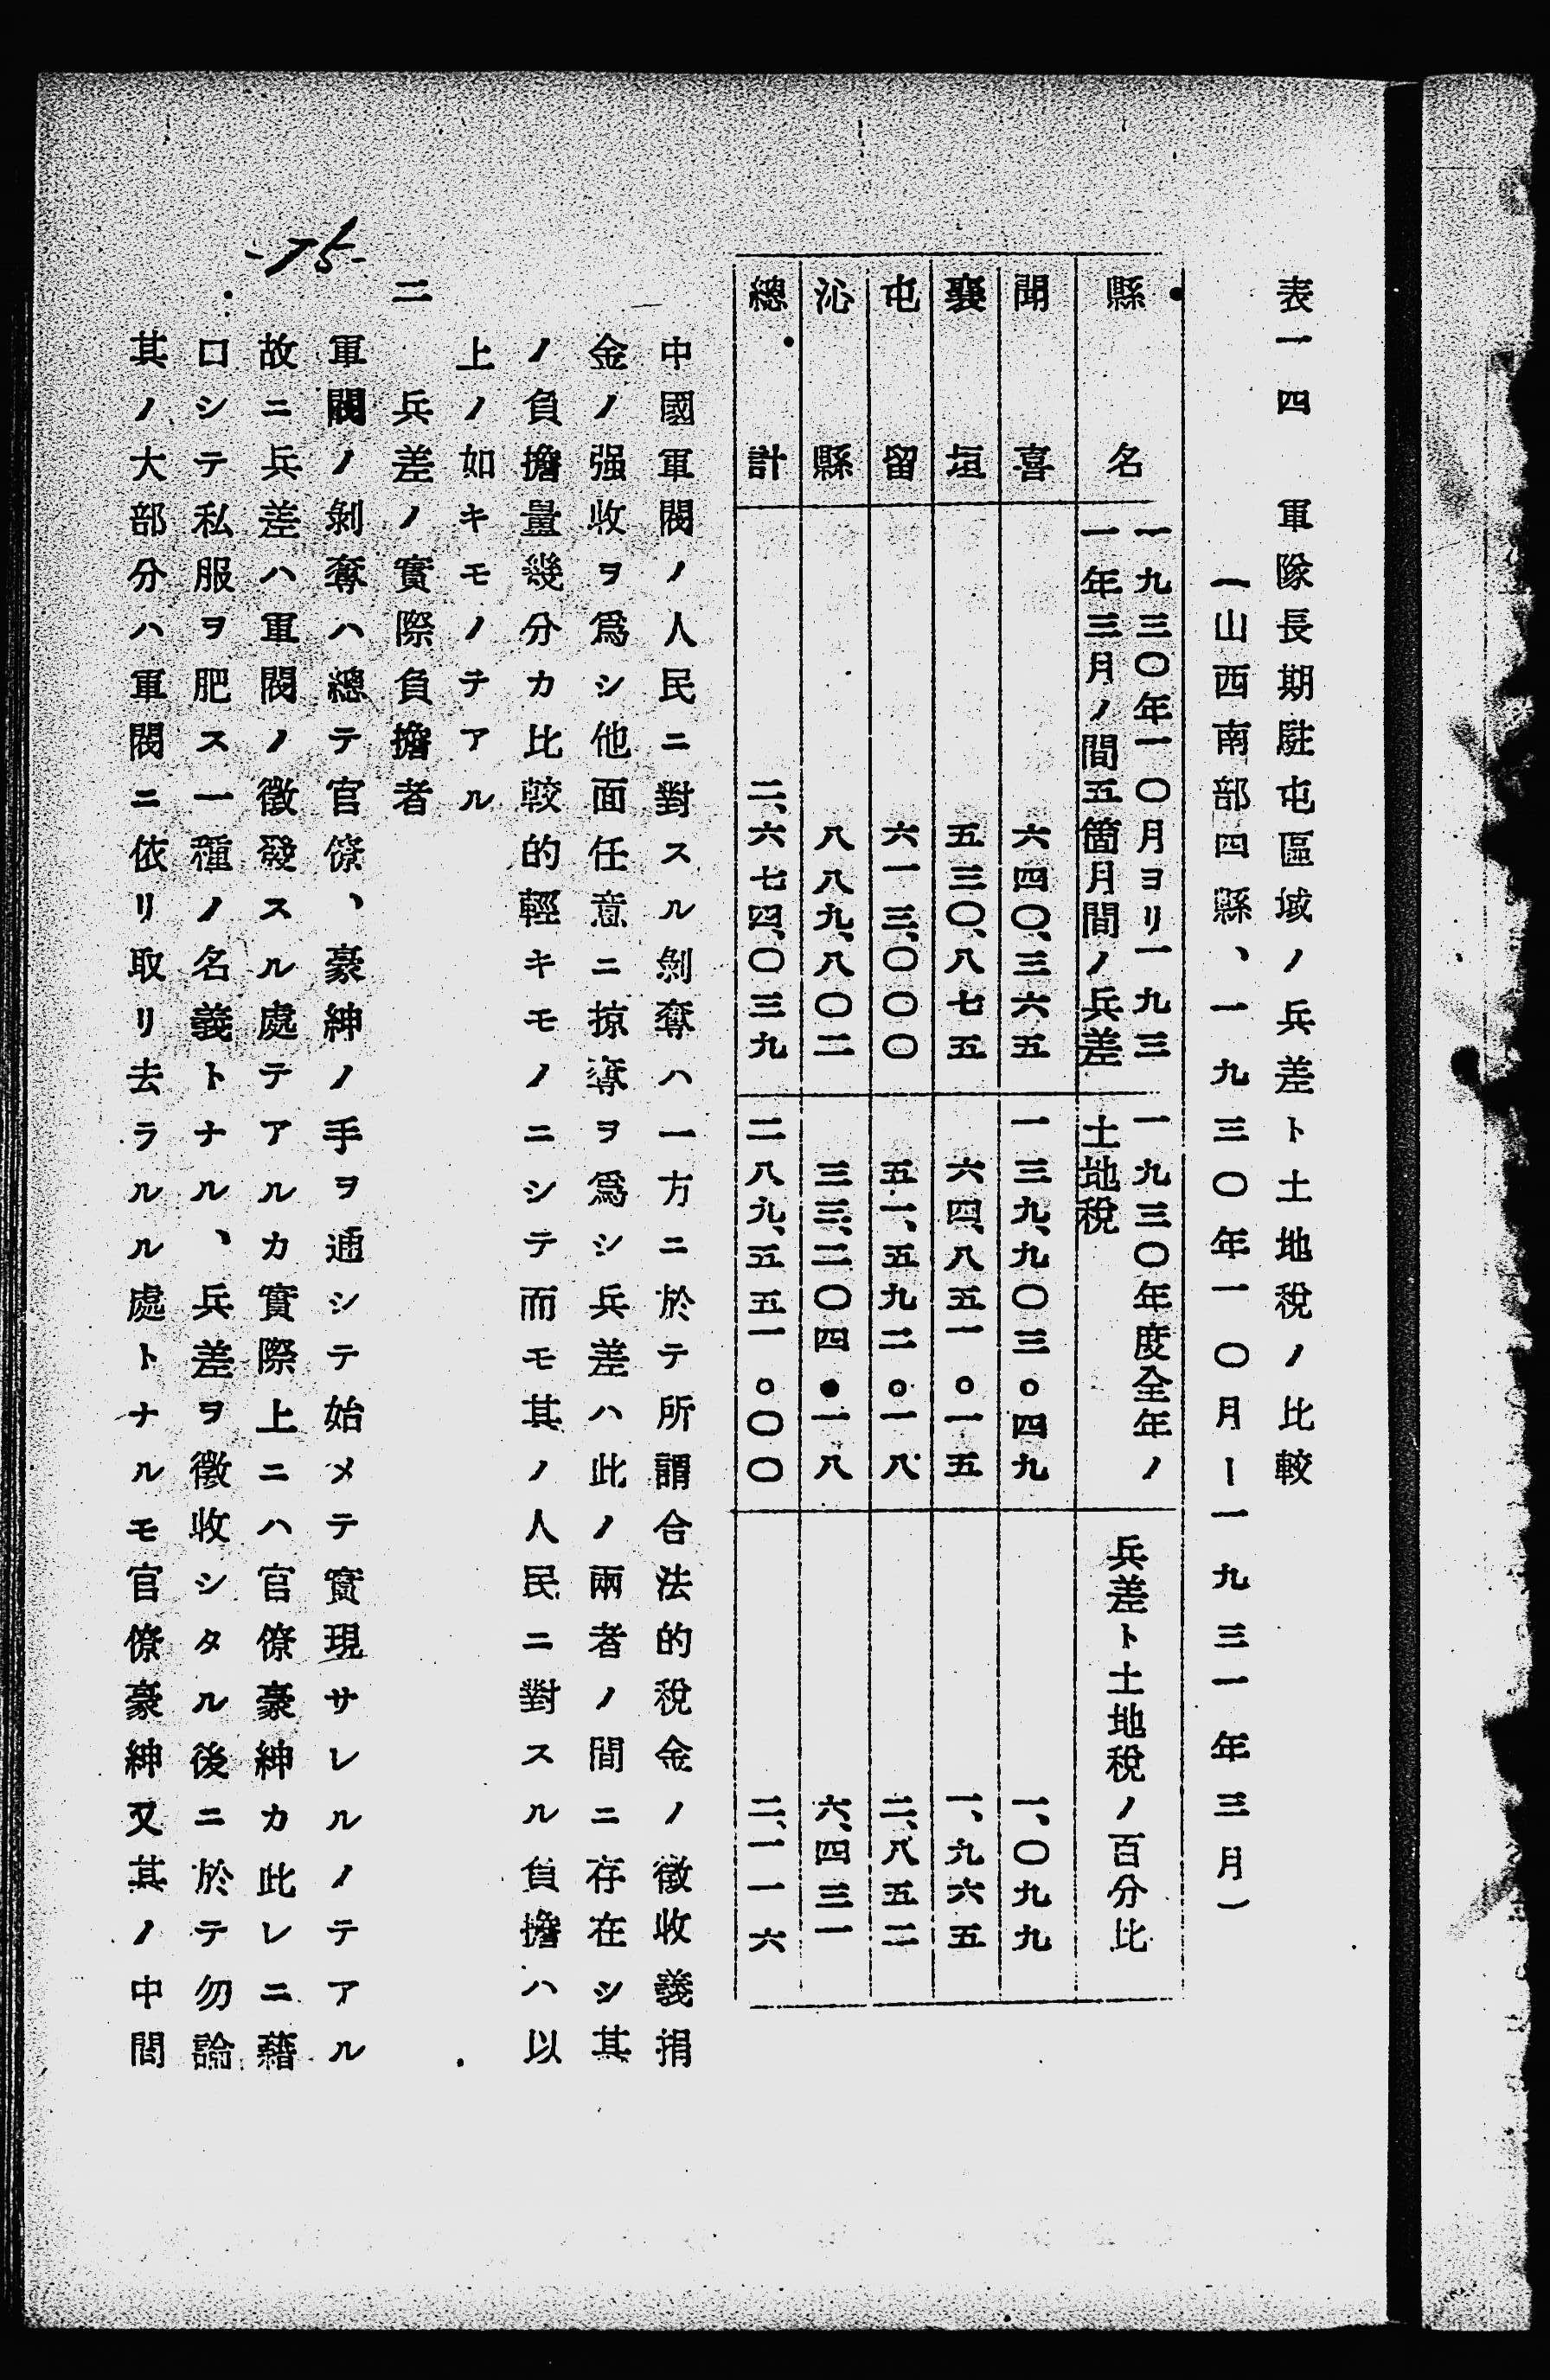 表一四　軍隊長期駐屯區域ノ兵差ト土地稅ノ比較
（山西南部四縣、一九三〇年一〇月ー一九三一年三月）
縣名
一九三〇年一〇月ヨリ一九三
一年三月ノ間五箇月間ノ兵差
一九三〇年度全年ノ
土地稅
兵差ト土地稅ノ百分比
聞喜　六四〇、三六五　一三九、九〇三。四九　一、〇九九
襄垣　五三〇、八七五　六四、八五一。一五　一、九六五
屯留　六一三、〇〇〇　五一、五九二。一八　二、八五二
沁縣　八八九、八〇二　三三、二〇四●一八　六、四三一
總計　二、六七四、〇三九　二八九、五五一。〇〇　二、一一六
中國軍閥ノ人民ニ對スル剝奪ハ一方ニ於テ所謂合法的稅金ノ徵收義捐
金ノ强收ヲ爲シ他面任意ニ掠奪ヲ爲シ兵差ハ此ノ兩者ノ間ニ存在シ其
ノ負擔量幾分カ比較的輕キモノニシテ而モ其ノ人民ニ對スル負擔ハ以
上ノ如キモノテアル
二　兵差ノ實際負擔者
軍閥ノ剝奪ハ總テ官僚、豪紳ノ手ヲ通シテ始メテ實現サレルノテアル
故ニ兵差ハ軍閥ノ徵發スル處テアルカ實際上ニハ官僚豪紳カ此レニ藉
口シテ私服ヲ肥ス一種ノ名義トナル、兵差ヲ徵收シタル後ニ於テ勿論
其ノ大部分ハ軍閥ニ依リ取リ去ラルル處トナルモ官僚豪紳又其ノ中間
-75-